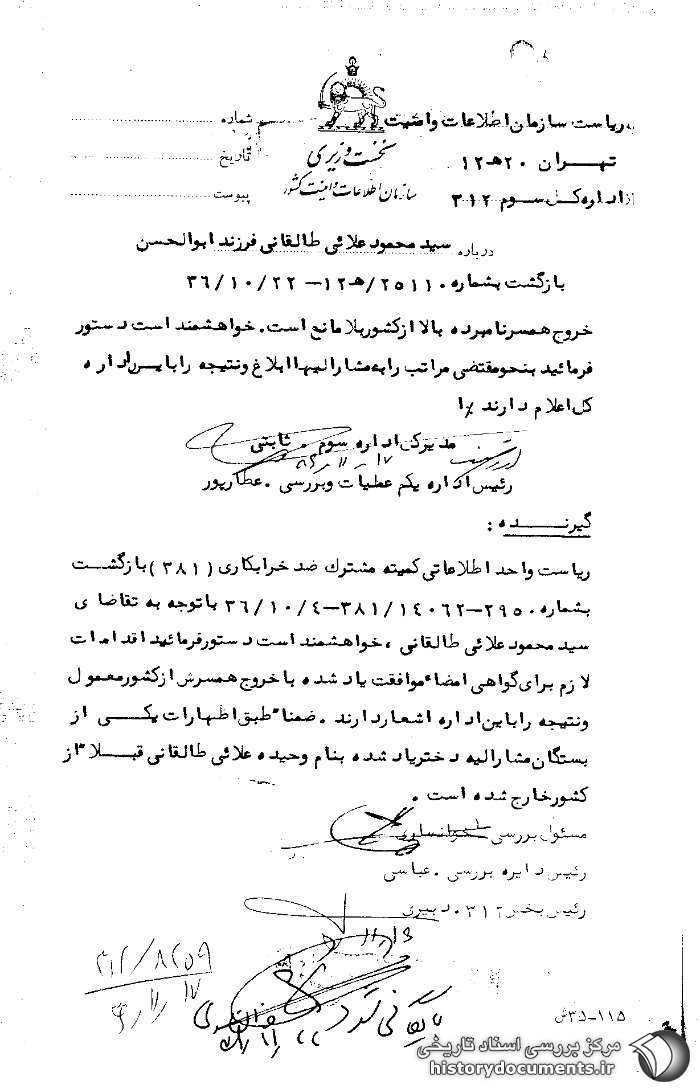 به ریاست سازمان اطلاعات وامنیت
شماره
تهران ۲۰هـ۱۲
نخست وزیری
تاریخ
از اداره کل سوم ۳۱۲
سازمان اطلاعات و امنیت کشور
پیوست
درباره سید محمود علائی طالقانی فرزند ابوالحسن
بازگشت بشماره ۲۵۱۱۰/هـ۱۲ – ۳۶/۱۰/۲۲
خروج همسر نامبرده بالا از کشور بلامانع است. خواهشمند است دستور
فرمائید بنحو مقتضی مراتب را به مشارالیها ابلاغ ونتیجه را باین اداره
کل اعلام دارند
مدیر کل اداره سوم . ثابتی
رئیس اداره یکم عملیات وبررسی . عطارپور
گیرنده :
ریاست واحد اطلاعاتی کمیته مشترک ضد خرابکاری (۳۸۱) بازگشت
بشماره ۲۹۵۰–۳۸۱/۱۴۰۶۲–۳۶/۱۰/۴ باتوجه به تقاضای
سید محمود علائی طالقانی ، خواهشمند است دستور فرمائید اقدامات
لازم برای گواهی امضاء موافقت یاد شده با خروج همسرش از کشور معمول
ونتیجه را باین اداره اشعار دارند . ضمنا" طبق اظهارات یکی از
بستگان مشارالیه دختر یاد شده بنام وحیده علائی طالقانی قبلا" از
کشور خارج شده است .
مسئول بررسی خوانساری
رئیس دایره بررسی . عباسی
رئیس بخش ۳۱۲ . دبیری
۳۱۲/۸۲۵۹
بایگانی شود
۱۱۵–۳۵ش
مرکز بررسی اسناد تاریخی
historydocuments.ir